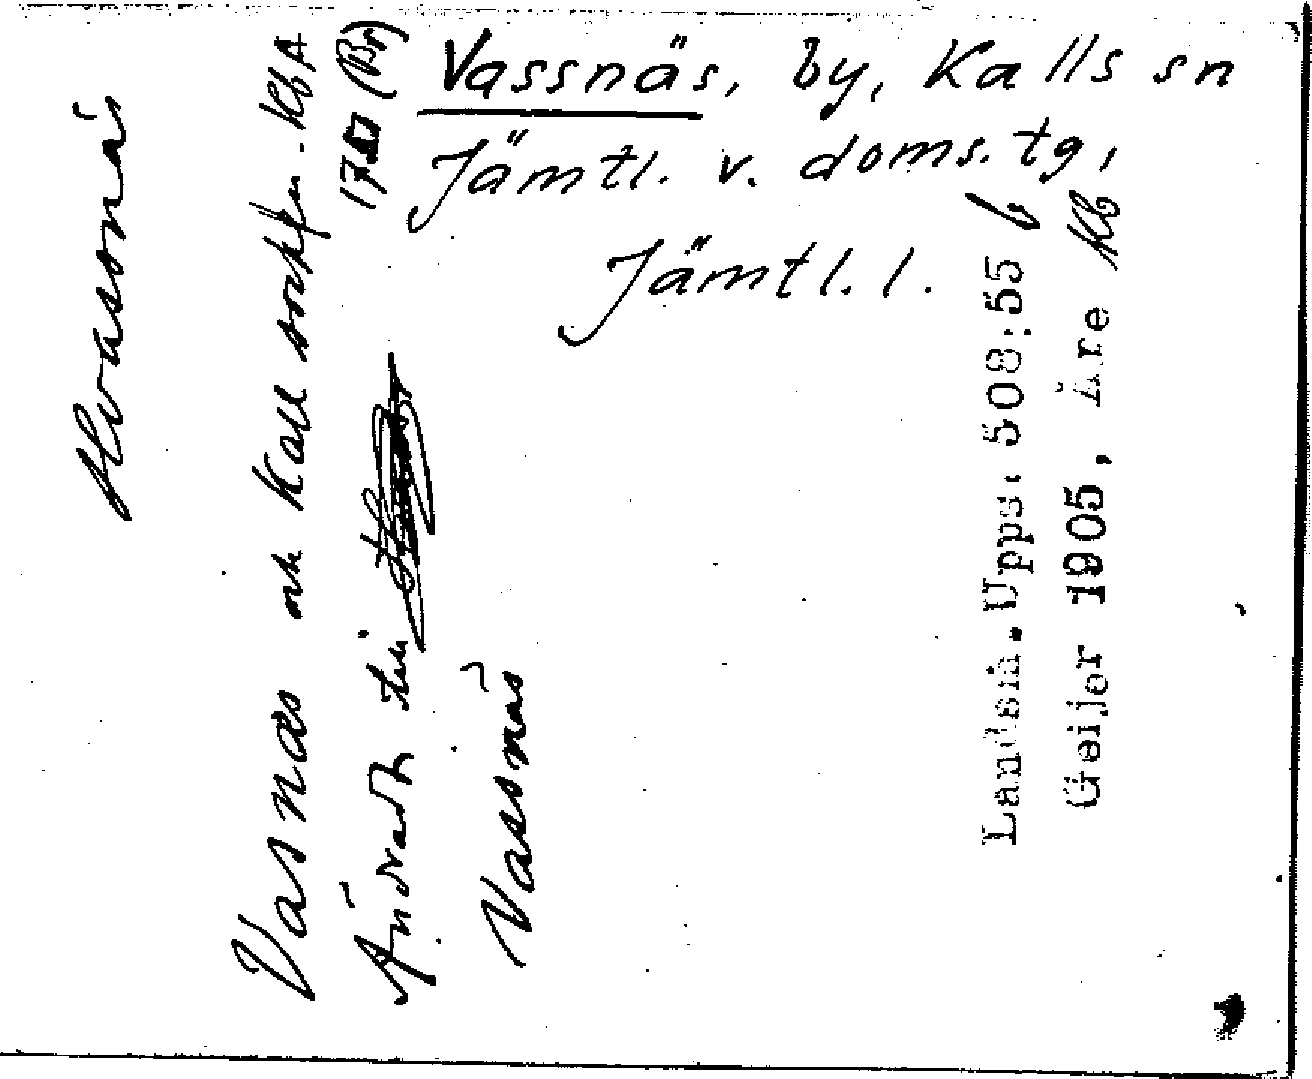 Vassnäs, by, Kalls sn
Jämtl. v. doms.tg,
Jämtl. l.
Hvassnäs
Vasnäs och Kall socken. KbA
(Br)
Ändradt till
Vassnäs
Landsm. Upps. 508:55 b
Geijer 1905, Åre Kb